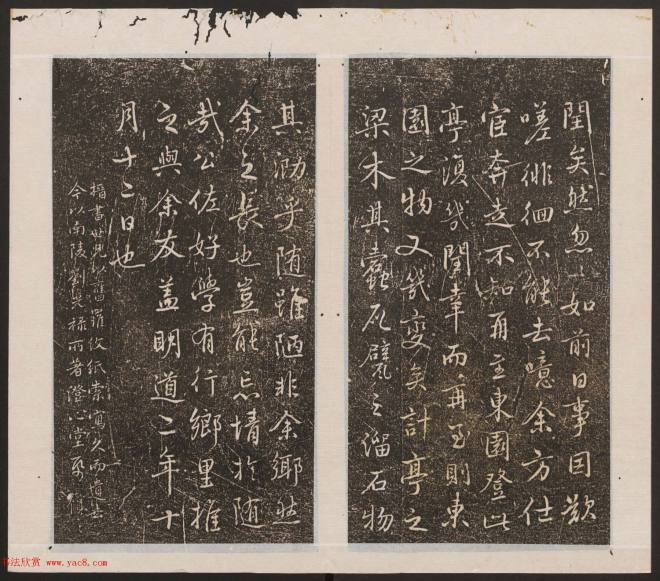 閏矣然忽〻如前日事因歎
嗟徘徊不能去噫余方仕
宦奔走不知再至東園登此
亭復幾閏幸而再至則東
園之物又幾變矣計亭之
梁木其蠹瓦甓之溜石物
其泐乎随雖陋非余鄉然
余之長也豈能忘情於随
哉公佐好學有行鄉里推
之與余友蓋明道二年十
月十二日也
楷書世見舊羅紋紙
今以南陵劉所著澄心堂
书法欣赏 www.yac8.com